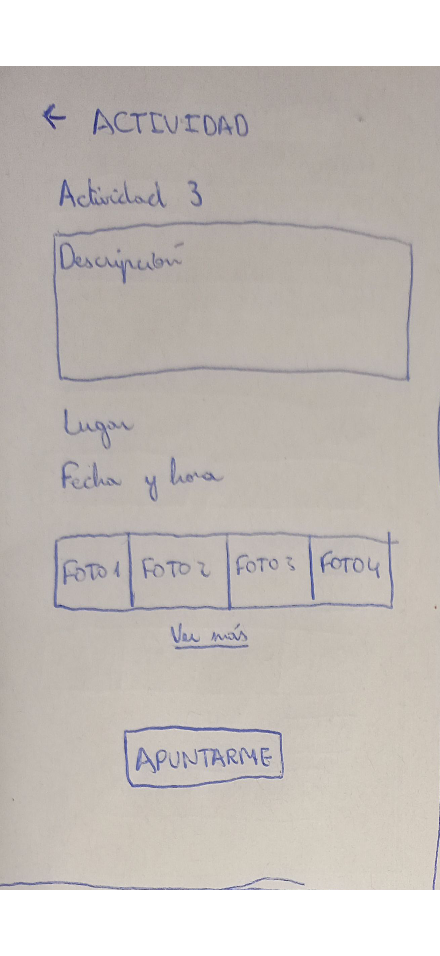 ← ACTIVIDAD
Actividad 3
Descripción
Lugar
Fecha y hora
FOTO 1 FOTO 2 FOTO 3 FOTO 4
Ver más
APUNTARME